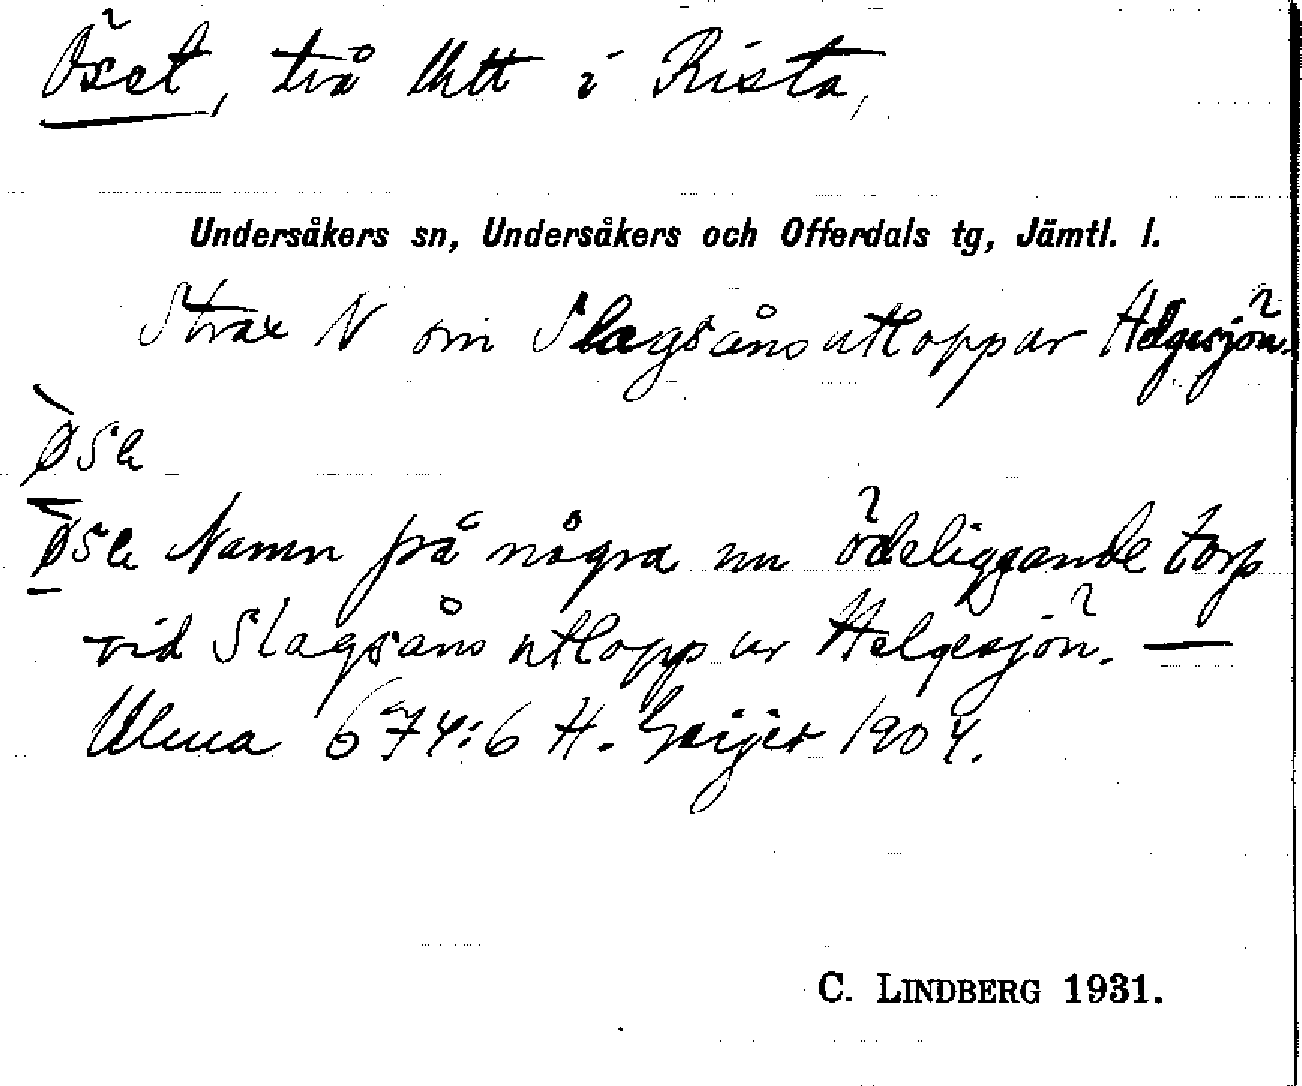 Öset, två lhtt i Rista,
Undersåkers sn, Undersåkers och Offerdals tg, Jämtl. l.
Strax N om Slagsåns utlopp ur Helgesjön.
øse
øse Namn på några nu ödeliggande torp
vid Slagsåns utlopp ur Helgesjön. —
Ulma 674:6 H. Geijer 1904.
C. LINDBERG 1931.